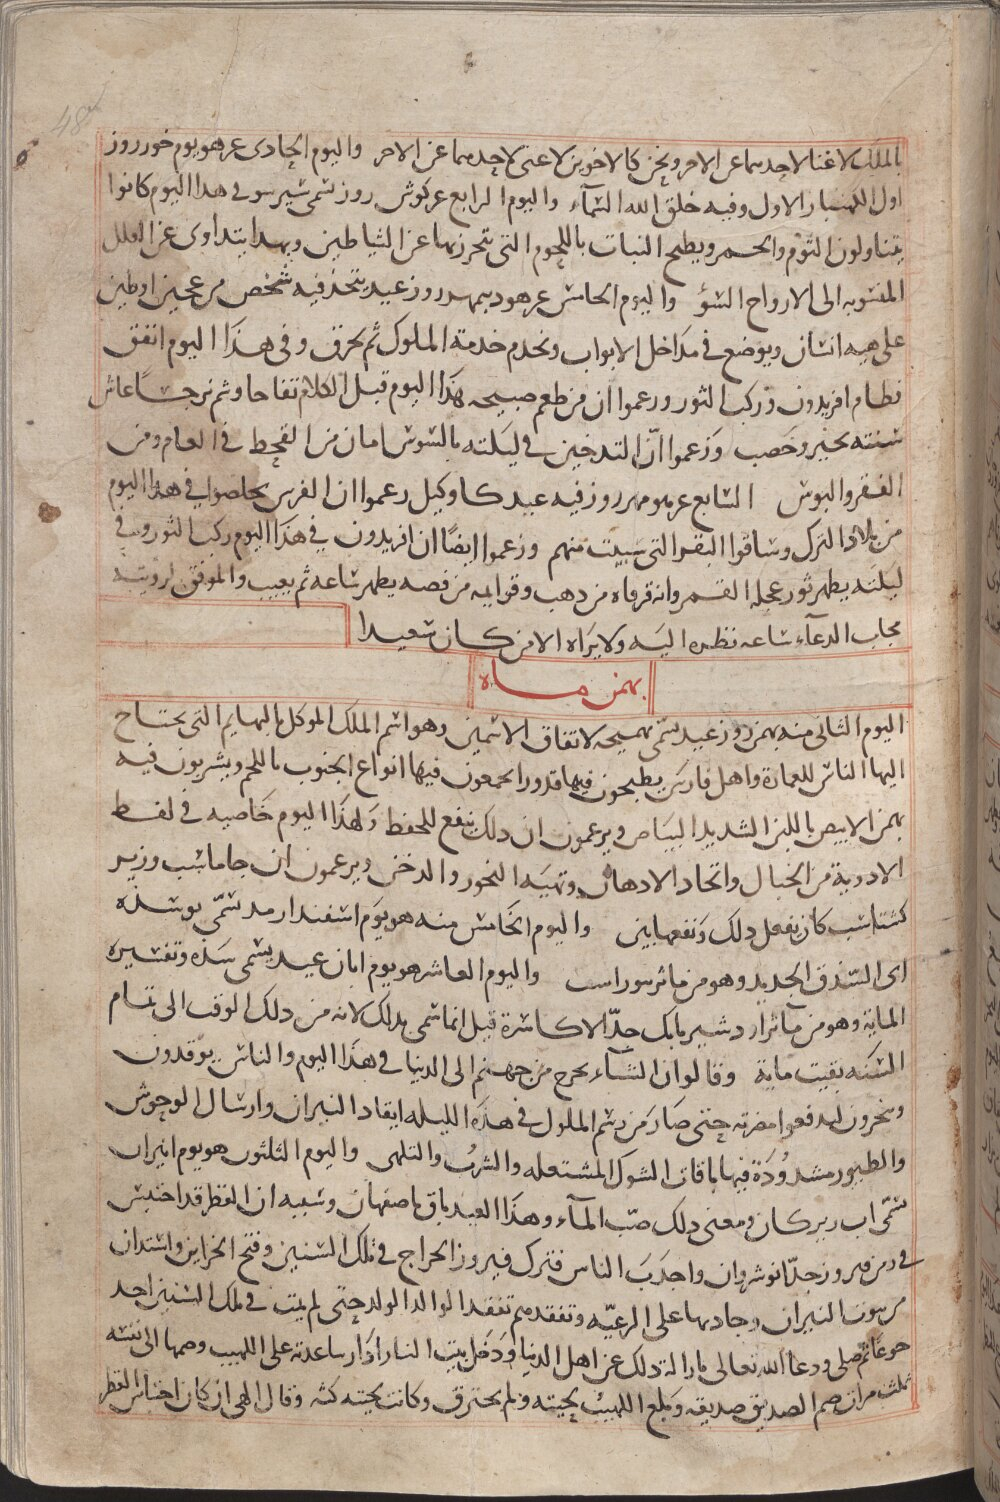 بالملك لاغنا لاحدهما عن الاخر ونحن كالاخوين لاغنى لاحدهما عن الاخر واليوم الحادى عر هو يوم خور روز
اول الكهنبار الاول وفيه خلق الله السماء واليوم الرابع عر كوش روز تسمى شيرسو فى هذا اليوم كانوا
يتناولون الثوم والخمر ويطبخ النبات باللحوم التى يتحرز بها عن الشياطين وبهذا يتداوى عن العلل
المنسوبه الى الارواح السؤ واليوم الخامس عر هو ديبمهر روز عيد يتخذ فيه شخص من عجين او طين
على هيه انسان ويوضع فى مداخل الابواب ويخدم خدمة الملوك ثم يحرق وفى هذا اليوم اتفق
فطام افريدون وركب الثور وزعموا ان من طعم صبيحه هذا اليوم قبل الكلام تفاحا وشم نرجسا عاش
سنته بخير وخصب وزعموا ان التدخين فى ليلته بالسوس امان من القحط فى العام ومن
الفقر والبوس السابع عر هو مهر روز فيه عيد كاوكيل زعموا ان الفرس تخلصوا فى هذا اليوم
من بلاد الترك وساقوا البقر التى سبيت منهم وزعموا ايضا ان افريدون فى هذا اليوم ركب الثور وفى
ليلته يظهر ثور عجله القمر وانه قرناه من ذهب وقوايمه من فضه يظهر ساعه ثم يغيب والموفق لرويته
مجاب الدعاء ساعه نظره اليه ولا يراه الا من كان سعيدا
بهمن ماه
اليوم الثانى منه بهمن روز عيد يسمى بهمنجه لاتفاق الاسمين وهو اسم الملك الموكل بالبهايم التى يحتاج
اليها الناس للعمارة واهل فارس يطبخون فيها قدورا يجمعون فيها انواع الحبوب باللحم ويشربون فيه
بهمن الابيض باللبن الشديد البياض ويزعمون ان ذلك ينفع للحفظ ولهذا اليوم خاصيه فى لقط
الادوية من الجبال واتخاذ الادهان وتهيه البخور والدخن ويزعمون ان جاماسب وزير
كشتاسب كان يفعل ذلك ونفعها بين واليوم الخامس منه هو يوم اسفندارمد تسمى بوسذه
اى السذق الجديد وهو من ماثر بيوراسب واليوم العاشر هو يوم ابان عيد يسمى سده وتفسيره
الماية وهو من ماثر اردشير بابك جد الاكاسرة قيل انما سمى بذلك لانه من ذلك الوقت الى تمام
السنه بقيت ماية وقالوا ان الشتاء يخرج من جهنم الى الدنيا فى هذا اليوم والناس يوقدون
ويبخرون ليدفعوا مضرته حتى صار من رسم الملوك فى هذه الليله ايقاد النيران وارسال الوحوش
والطيور مشدودة فيها باقات الشوك المشتعله والشرب والتلهى واليوم الثلثون هو يوم انيران
تسمى اب ريزكان ومعنى ذلك صب الماء وهذا العيد باق باصفهان وسببه ان القطر قد احتبس
فى زمن فيروز جد انوشروان واجدب الناس فترك فيروز الخراج فى تلك السنين وفتح الخزاين واستدان
من بيوت النيران وجاد بها على الرعيه وتفقدهم تفقد الوالد الولد حتى لم يمت فى تلك السنين احد
جوعا ثم صلى ودعا الله تعالى بازالة ذلك عن اهل الدنيا ودخل بيت النار وادار ساعدته على اللهيب وضمها الى نفسه
ثلث مرات ضم الصديق صديقه وبلغ اللهيب لحيته ولم يحترق وكانت لحيته كثه وقال الهى ان كان احتباس القطر